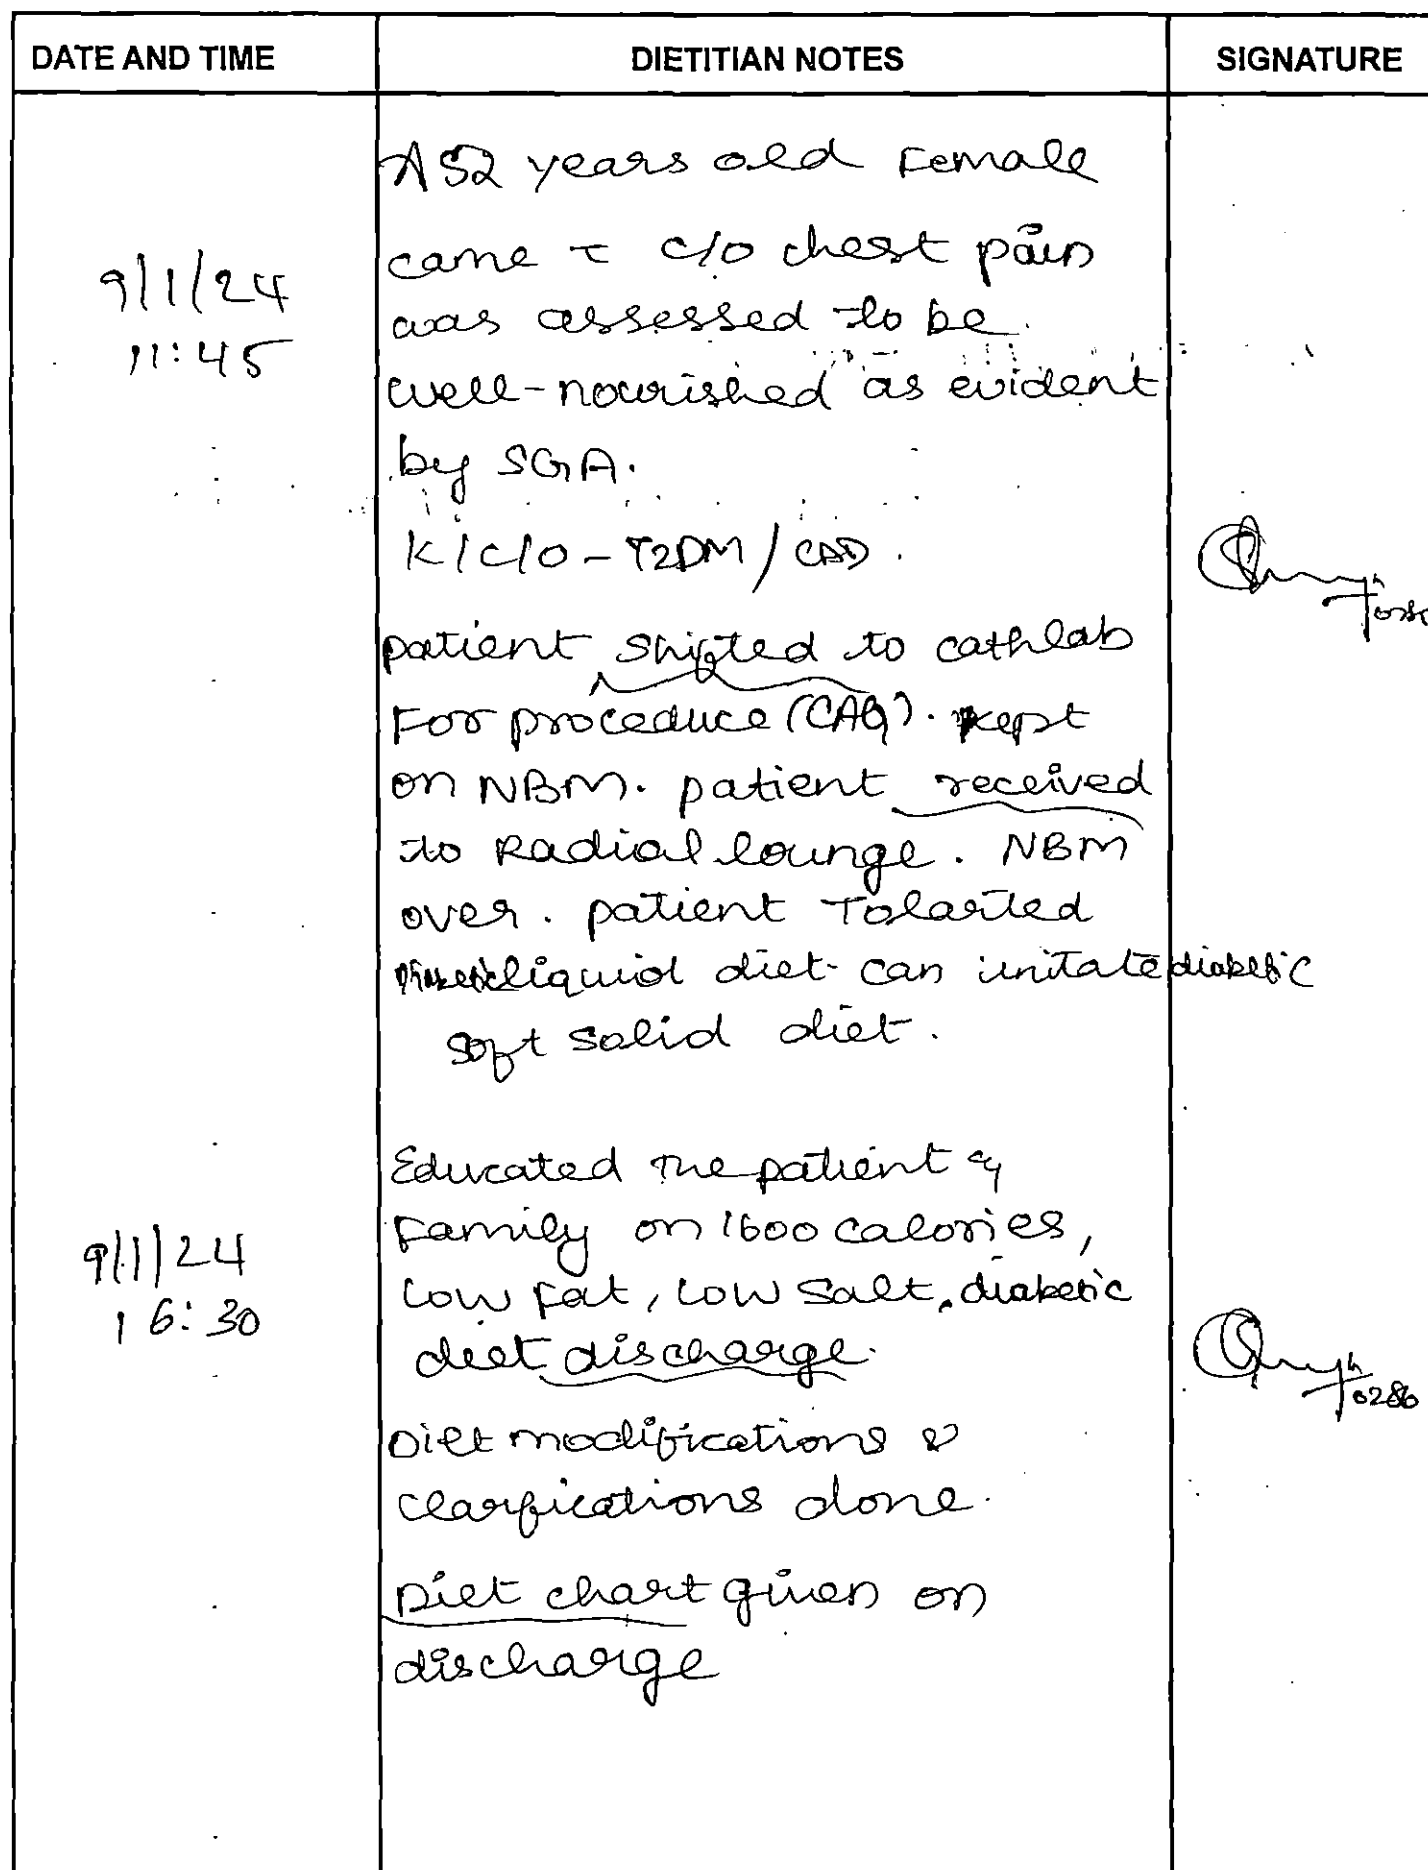 DATE AND TIME DIETITIAN NOTES SIGNATURE
A 52 years old Female
9/1/24
came c̄ c/o chest pain
11:45
was assessed to be
well-nourished as evident
by SGA.
K/c/o - T2DM / CAD.
patient shifted to cathlab
For proceduce (CAG). kept
on NBM. patient received
to Radial lounge. NBM
over. patient Tolarted
liquid diet. can initate diabetic
soft solid diet.
Educated the patient &
Family on 1600 calories,
9/1/24
Low fat, low salt, diabetic
16:30
diet discharge.
0286
Diet modifications &
clarfications done.
Diet chart given on
discharge